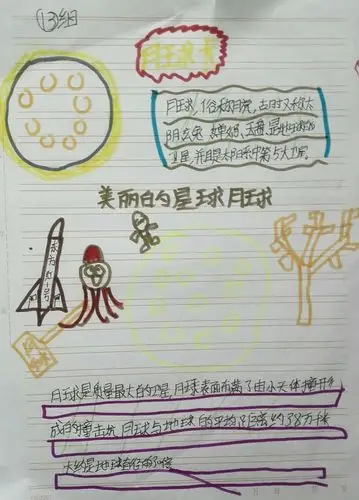 (13)组
月球卡
月球，俗称月亮，古时又称太
阴、玄兔、婵娟、玉盘，是地球的
卫星，并且是太阳系中第5大卫星。
美丽的星球月球
月球是质量最大的卫星,月球表面布满了由小天体撞击
成的撞击坑,月球与地球的平均距离约38万千米
大约是地球直径的30倍